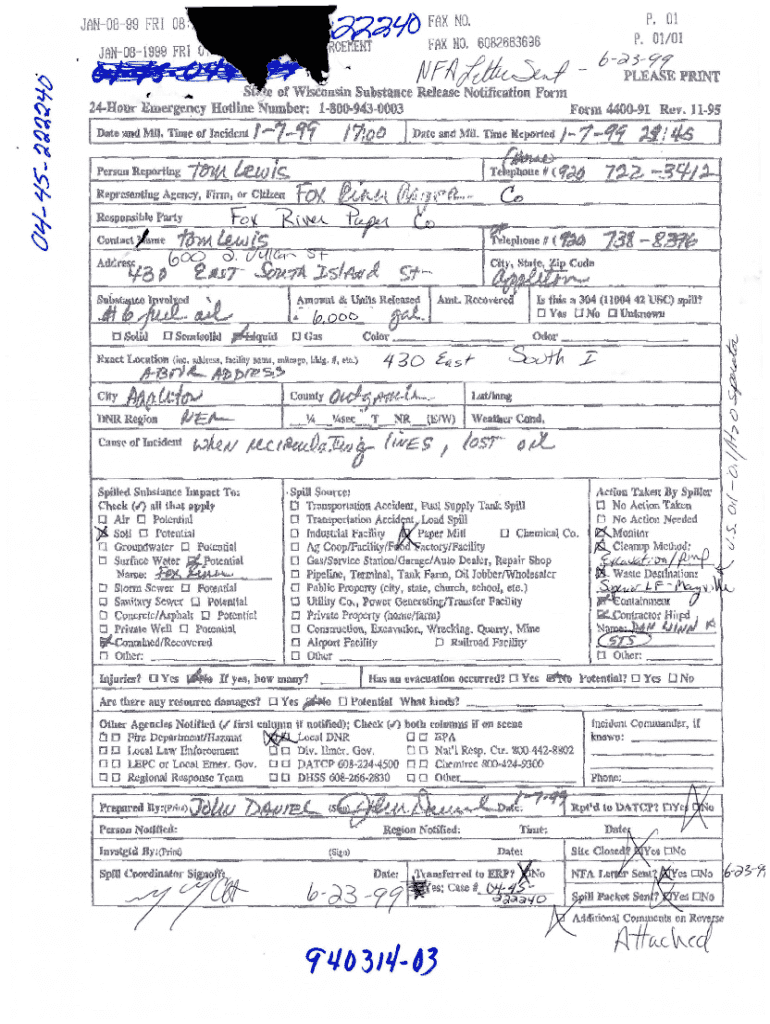 JAN-08-99 FRI 08: 22240 FAX NO. P. 01
JAN-08-1999 FRI 0 RCEMENT FAX NO. 6082683696 P. 01/01
04-45-222240
NFA Letter Sent - 6-23-99
PLEASE PRINT
State of Wisconsin Substance Release Notification Form
24-Hour Emergency Hotline Number: 1-800-943-0003 Form 4400-91 Rev. 11-95
Date and Mil. Time of Incident 1-7-99 17:00 Date and Mil. Time Reported 1-7-99 :45
Person Reporting Tom Lewis Telephone # (920 722-3412
Representing Agency, Firm, or Citizen Fox River Paper Co
Responsible Party Fox River Paper Co
Contact Name Tom Lewis Telephone # (920 738-8376
Address 600 St City, State, Zip Code
430 EAST South Island St- Appleton
Substance Involved Amount & Units Released Amt. Recovered Is this a 304 (11004 42 USC) spill?
#6 fuel oil 6,000 gal. □ Yes □ No □ Unknown
□ Solid □ Semisolid □ Liquid □ Gas Color Odor
Exact Location (inc. address, facility name, mileage, bldg. #, etc.) 430 East South I
ABOVE ADDRESS
City Appleton County Outagamie Lat/long
DNR Region NER ¼ ¼sec T NR (E/W) Weather Cond.
Cause of Incident when recirculating lines, lost oil
Spilled Substance Impact To: Spill Source: Action Taken By Spiller
Check (✓) all that apply □ Transportation Accident, Fuel Supply Tank Spill □ No Action Taken
□ Air □ Potential □ Transportation Accident, Load Spill □ No Action Needed
Soil □ Potential □ Industrial Facility Paper Mill □ Chemical Co. Monitor
□ Groundwater □ Potential □ Ag Coop/Facility/Food Factory/Facility Cleanup Method:
□ Surface Water Potential □ Gas/Service Station/Garage/Auto Dealer, Repair Shop Excavation/Pump
Name: Fox River □ Pipeline, Terminal, Tank Farm, Oil Jobber/Wholesaler Waste Destination:
□ Storm Sewer □ Potential □ Public Property (city, state, church, school, etc.) Superior LF-Mayville
□ Sanitary Sewer □ Potential □ Utility Co., Power Generating/Transfer Facility Containment
□ Concrete/Asphalt □ Potential □ Private Property (home/farm) Contractor Hired
□ Private Well □ Potential □ Construction, Excavator, Wrecking, Quarry, Mine Name: DAN
Contained/Recovered □ Airport Facility □ Railroad Facility STS
□ Other: □ Other □ Other:
U.S. Oil-Oil/H2O Separator
Injuries? □ Yes No If yes, how many? Has an evacuation occurred? □ Yes No Potential? □ Yes □ No
Are there any resource damages? □ Yes No □ Potential What kinds?
Other Agencies Notified (✓ first column if notified); Check (✓) both columns if on scene Incident Commander, if
□ □ Fire Department/Hazmat Local DNR □ □ EPA known:
□ □ Local Law Enforcement □ □ Div. Emer. Gov. □ □ Nat'l Resp. Ctr. 800-442-8802
□ □ LEPC or Local Emer. Gov. □ □ DATCP 608-224-4500 □ □ Chemtrec 800-424-9300
□ □ Regional Response Team □ □ DHSS 608-266-2830 □ □ Other Phone:
Prepared By:(Print) JOHN DANIEL (Sign) Date: 1-7-99 Rpt'd to DATCP? □ Yes □ No
Person Notified: Region Notified: Time: Date:
Investgtd By:(Print) (Sign) Date: Site Closed? Yes □ No
Spill Coordinator Signoff: Date: Transferred to ERP? No NFA Letter Sent? Yes □ No 6-23-99
6-23-99 Yes; Case # 04-45-222240 Spill Packet Sent? Yes □ No
Additional Comments on Reverse
Attached
940314-03